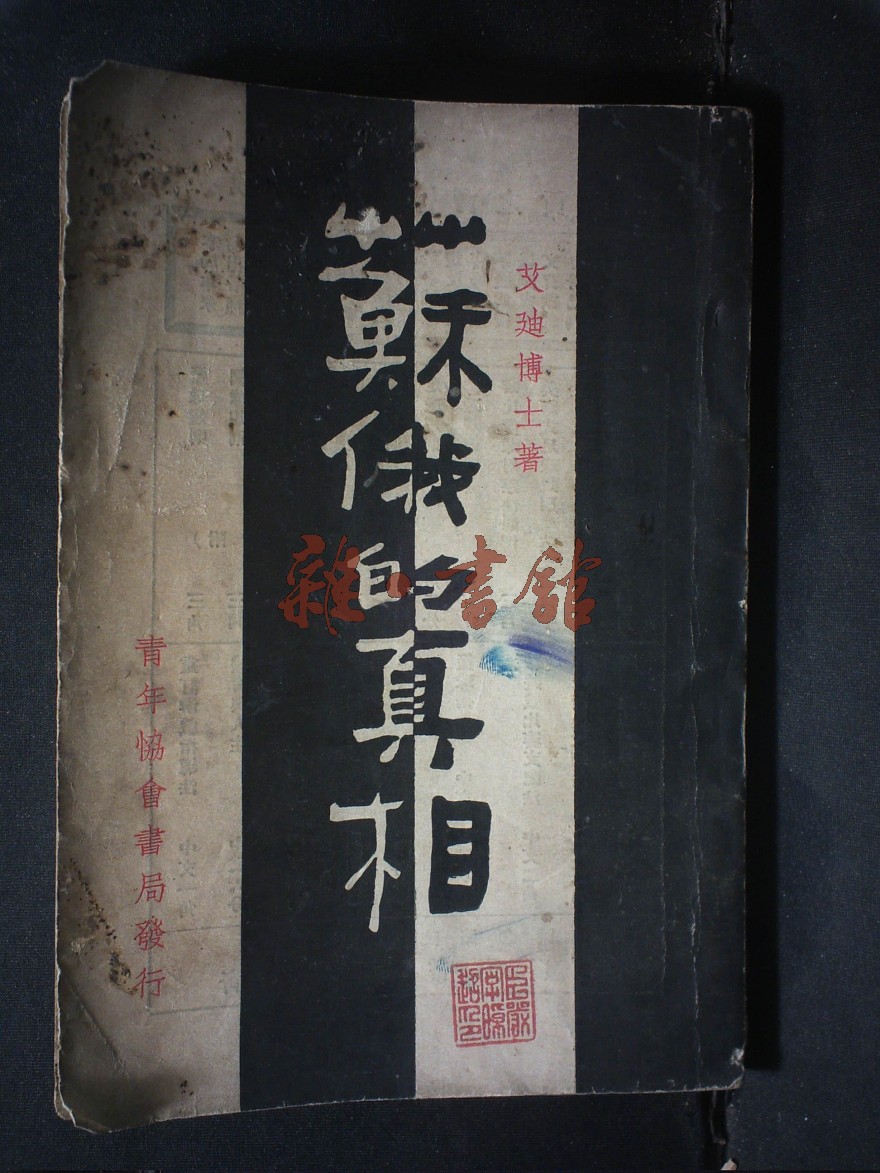 艾迪博士著
蘇俄的真相
青年協會書局發行
雜·書館